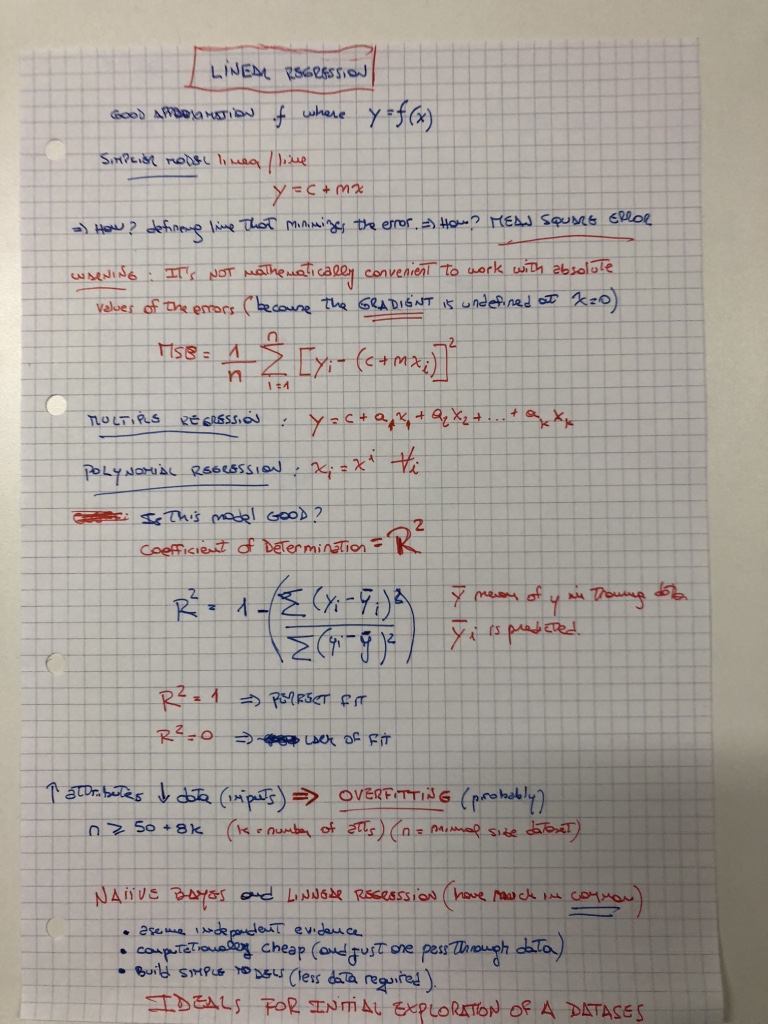 LINEAR REGRESSION
GOOD APPROXIMATION f where y = f(x)
SIMPLER MODEL linea / line
y = c + mx
=> HOW? defining line that minimizes the error. => HOW? MEAN SQUARE ERROR
WARNING: IT'S NOT mathematically convenient to work with absolute
values of the errors (because the GRADIENT is undefined at x=0)
MSE = 1/n Σ_{i=1}^{n} [y_i - (c + mx_i)]^2
MULTIPLE REGRESSION: y = c + a_1x_1 + a_2x_2 + ... + a_kx_k
POLYNOMIAL REGRESSION: x_i = x^i ∀i
Is this model GOOD?
Coefficient of Determination = R^2
R^2 = 1 - (Σ(y_i - ȳ_i)^2 / Σ(y_i - ȳ)^2)
ȳ mean of y in training data
ȳ_i is predicted.
R^2 = 1 => PERFECT FIT
R^2 = 0 => LACK OF FIT
↑ attributes ↓ data (inputs) => OVERFITTING (probably)
n ≥ 50 + 8k (k = number of atts) (n = minimal size dataset)
NAIIVE BAYES and LINNEAR REGRESSION (have much in common)
• assume independent evidence
• computationally cheap (and just one pass through data)
• Build SIMPLE MODELS (less data required).
IDEALS FOR INITIAL EXPLORATION OF A DATASES